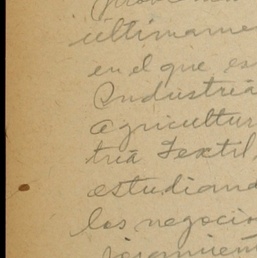 últimame
en el que es
Industria
agricultur
tria Textil,
estudiand
los negocio